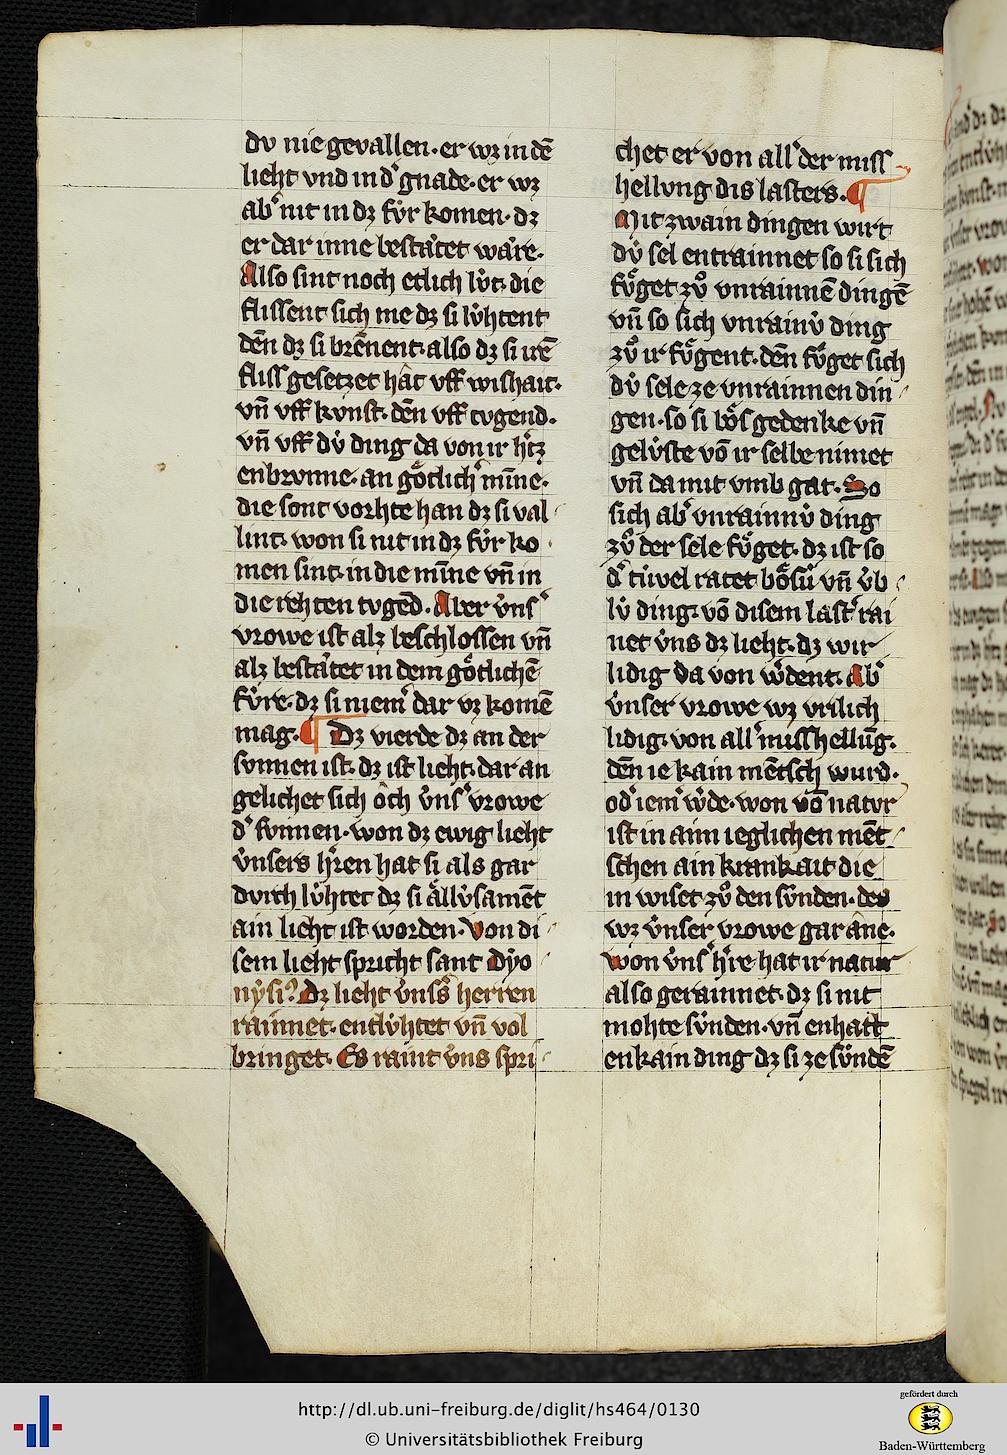 dv nie gevallen · er wz in dē
lieht vnd in d͛ gnade · er wz
ab͛ nit in dz fv́r komen · dz
er dar inne bestätet wäre ·
Also sint noch etlich lv́t · die
flissent sich me dz si lv́htent
dēn dz si brēnent · also dz si irē
fliss gesetzet hât vff wishait ·
vn̄ vff kvnst · dēn vff tvgend ·
vn̄ vff dv́ ding da von ir h͛tz
enbrvnne · an gôtlich͛ mīne ·
die sont vorhte han dz si val
lint · won si nit in dz fv́r ko
men sint · in die mīne vn̄ in
die rehten tvgēd · Aber v́ns͛
vrowe ist alz beschlossen vn̄
alz bestätet in dem gôtlichē
fv́re · dz si niem͛ dar vz komē
mag · ¶ Dz vierde dz an der
svnnen ist · dz ist lieht · dar an
gelichet sich och v́ns͛ vrowe
d͛ svnnen · won dz ewig lieht
v́nsers h͛ren hat si als gar
dvrch lv́htet dz si ällv́samēt
ain lieht ist worden · Von di
sem lieht spricht sant Dẏo
nẏsiꝰ · Dz lieht v́ns͛s herren
rainnet · entlv́htet vn̄ vol
bringet · Es raint v́ns spri
chet er von all͛ der miss
hellvng dis lasters · ¶
Mit zwain dingen wirt
dv́ sel entrainnet so si sich
fv̊get zv̊ vnrainnē dingē
vn̄ so sich vnrainv́ ding
zv̊ ir fv̊gent · dēn fv̊get sich
dv́ sele ze vnrainnen din
gen · so si bôs gedenke vn̄
gelv́ste vō ir selbe nimet
vn̄ da mit vmb gat · So
sich ab͛ vnrainnv́ ding
zv̊ der sele fv̊get · dz ist so
d͛ tiuvel ratet bôsv́ vn̄ v́b
lv́ ding · vō disem last͛ rai
net v́ns dz lieht · dz wir
lidig da von w͛dent · Ab͛
v́nser vrowe wz vrilich
lidig · von all͛ misshellūg ·
dēn ie kain mētsch wurd ·
od͛ iem͛ w͛de · won vō natvr
ist in aim ieglichen mēt
schen ain krankait die
in wiset zv̊ den sv́nden · des
wz v́nser vrowe gar âne ·
Won v́ns͛ h͛re hat ir natur
also gerainnet · dz si nit
mohte sv́nden · vn̄ enhatt
enkain ding dz si ze sv́ndē
http://dl.ub.uni-freiburg.de/diglit/hs464/0130
© Universitätsbibliothek Freiburg
gefördert durch
Baden-Württemberg